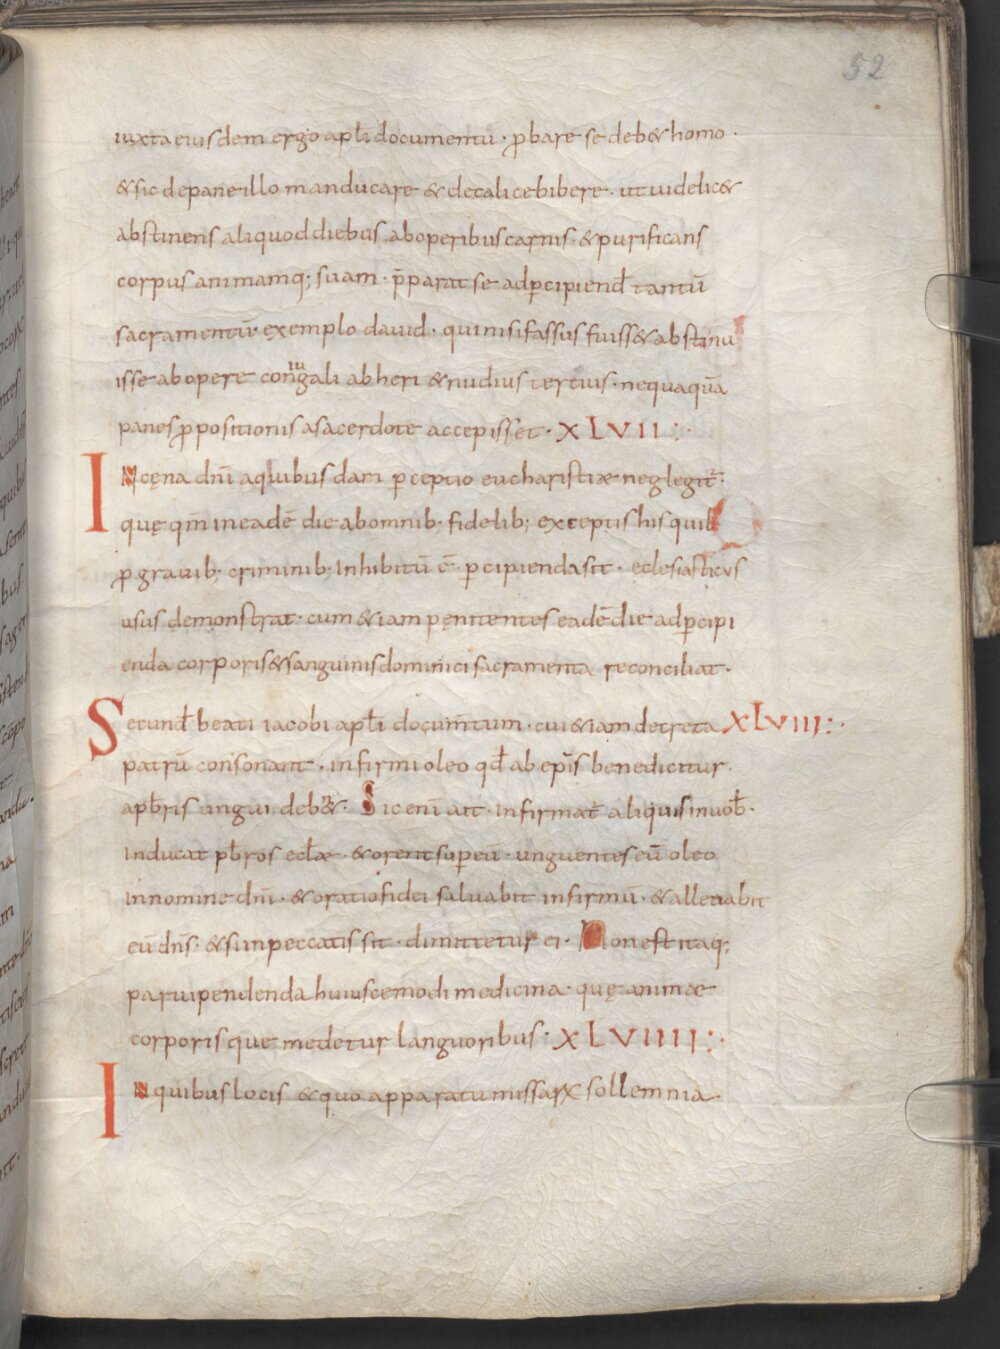 52
iuxta eiusdem ergo apłi documentū · ꝓbare se deb& homo ·
& sic depane illo manducare & decalice bibere · ut uidelic&
abstinens aliquod diebus ab operibus carnis · & purificans
corpus animamq; suam · p̄parat se adꝑcipiend̄ tantū
sacramentū · exemplo dauid · qui nisi fassus fuiss& abstinu
isse ab opere coniugali ab heri & nudius tertius · nequaquā
panes ꝓpositionis a sacerdote accepisset · XLVII :·
IN cęna dn̄i a quibusdam ꝑceptio eucharistiæ neglegit̄ ·
quę qm̄ in eadē die ab omnib· fidelib; exceptis his quib·
ꝓ grauib; criminib; inhibitū ē · ꝑcipienda sit · ęclesiasticus
usus demonstrat · cum &iam pęnitentes eadē die adꝑcipi
enda corporis & sanguinis dominici sacramenta reconciliat ·
Secund̄ beati iacobi apłi docum̄tum · cui &iam decreta XLVIII :·
patrū consonant · infirmi oleo qd̄ ab epīs benedicitur
a pb̄ris ungui deb& · Sic eni ait · infirmat̄ aliquis in uob̄ ·
inducat pb̄ros ecłæ · & orent super eū · unguentes eū oleo
in nomine dn̄i · & oratio fidei saluabit infirmū · & alleuabit
eū dn̄s · & si in peccatis sit · dimittetur ei · Non est itaq;
paruipendenda huiuscemodi medicina · quę animæ
corporisque medetur languoribus · XLVIIII :·
IN quibus locis & quo apparatu missaꝝ sollemnia